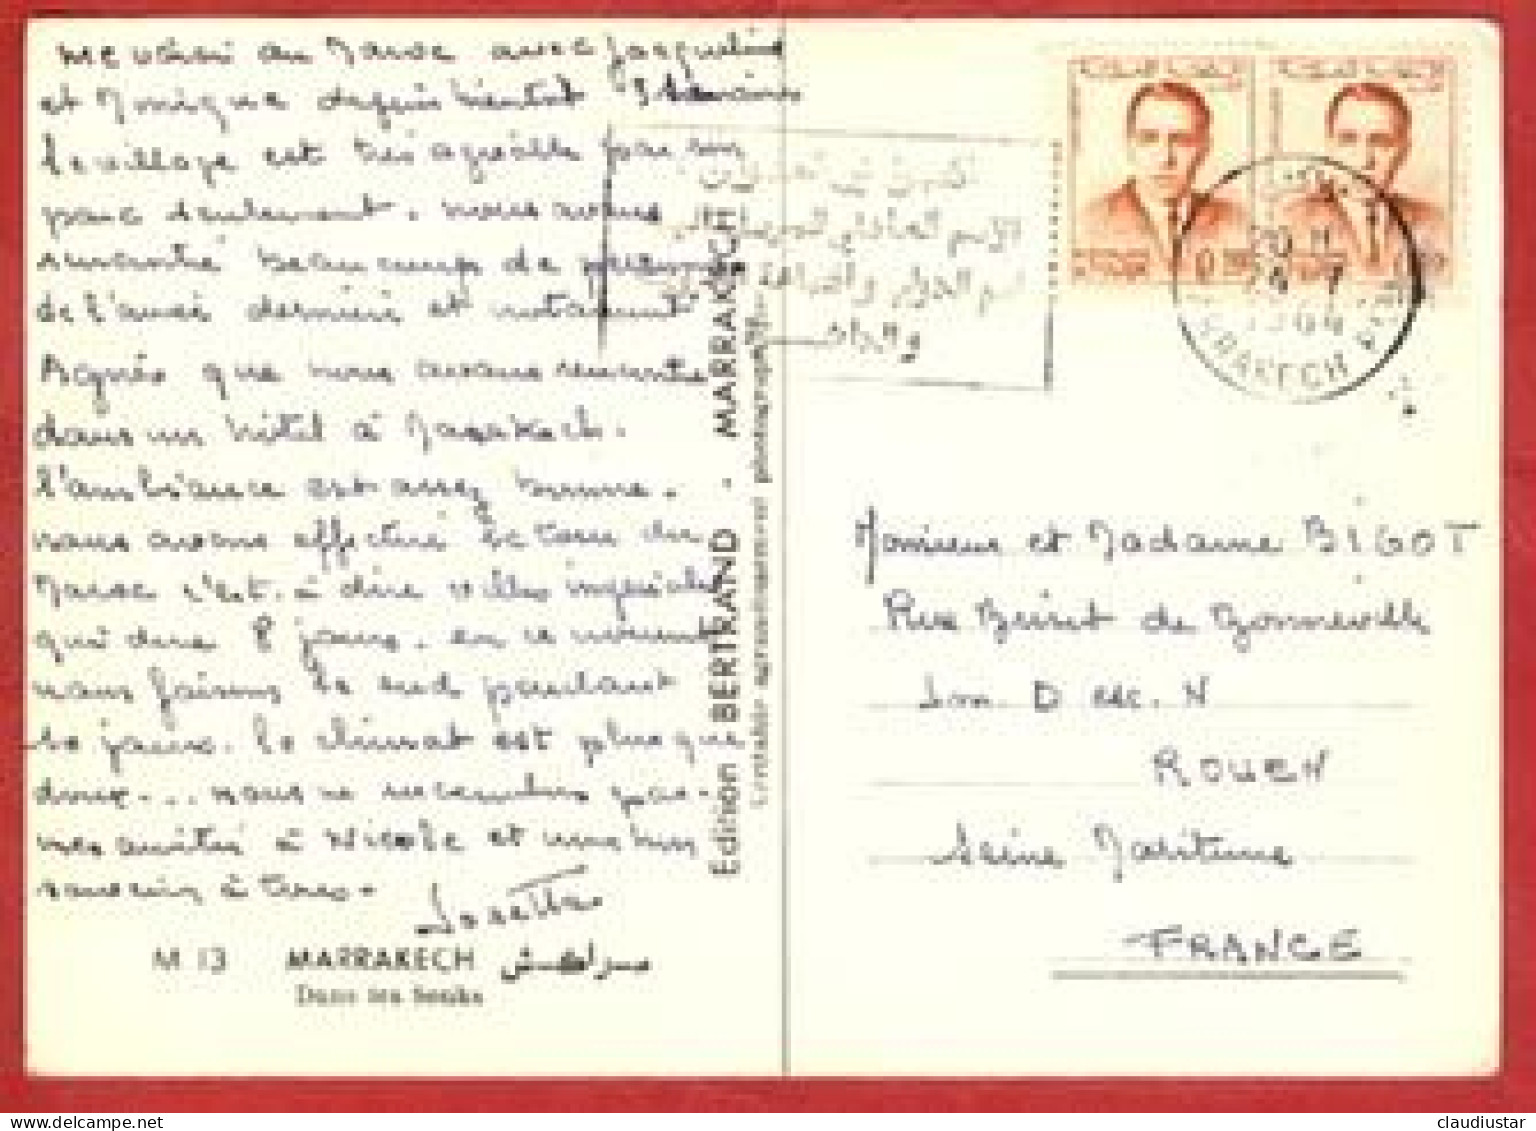 Me voici au Maroc avec Jacqueline
et Monique depuis bientôt 3 semaines
le village est très agréable par son
parc seulement. nous avons
rencontré beaucoup de personnes
de l'année dernière et notamment
Agnès que nous avons rencontré
dans un hôtel à Marrakech.
l'ambiance est assez bonne.
nous avons effectué le tour du
Maroc c'est-à dire villes impériales
qui dure 8 jours. en ce moment
nous faisons le sud pendant
10 jours. le climat est plus que
doux... nous ne
mes amitiés à Nicole et un bon
souvenir à tous.
Josetta
M 13 MARRAKECH مراكش
Dans les Souks
Edition BERTRAND - MARRAKECH
Véritable agrandissement photographique
الاسم
اسم الدوار
0,20
MARRAKECH
Monsieur et Madame BIGOT
Rue de Gonneville
Imm. D esc. N
ROUEN
Seine Maritime
FRANCE
claudiustar